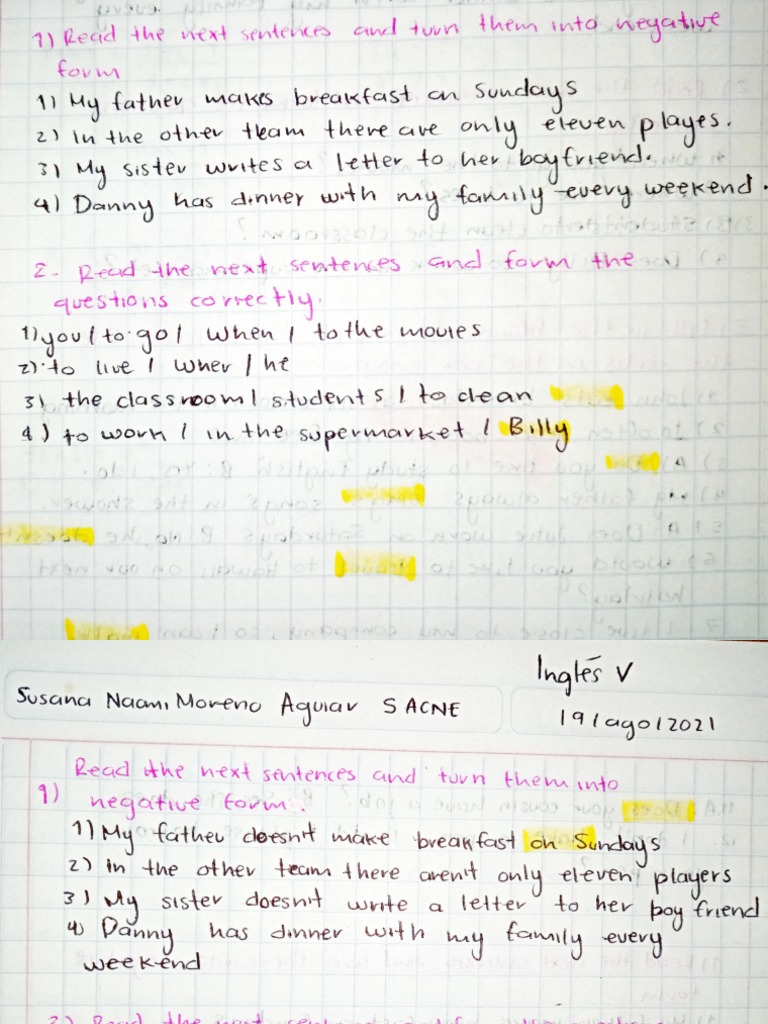 1) Read the next sentences and turn them into negative
form
1) My father makes breakfast on Sundays
2) In the other team there are only eleven playes.
3) My sister writes a letter to her boyfriend.
4) Danny has dinner with my family every weekend.
2- Read the next sentences and form the
questions correctly.
1) you / to go / when / to the movies
2) to live / wher / he
3) the classroom / students / to clean
4) to work / in the supermarket / Billy
Inglés V
Susana Naomi Moreno Aguiar 5 ACNE
19/ago/2021
Read the next sentences and turn them into
1) negative form.
1) My father doesn't make breakfast on Sundays
2) in the other team there aren't only eleven players
3) My sister doesn't write a letter to her boy friend
4) Danny has dinner with my family every
weekend
2) Read the next sentences